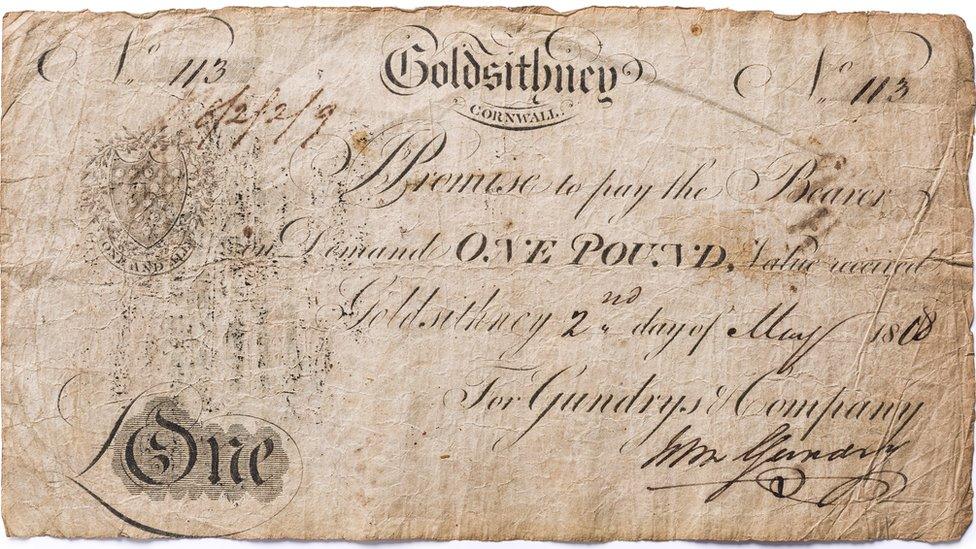 No 113
Goldsithney
CORNWALL
No 113
6/2/2/9
I Promise to pay the Bearer
on Demand ONE POUND, Value received
Goldsithney 2nd day of May 1808
For Gundrys & Company
Wm Gundry
ONE AND ALL
One